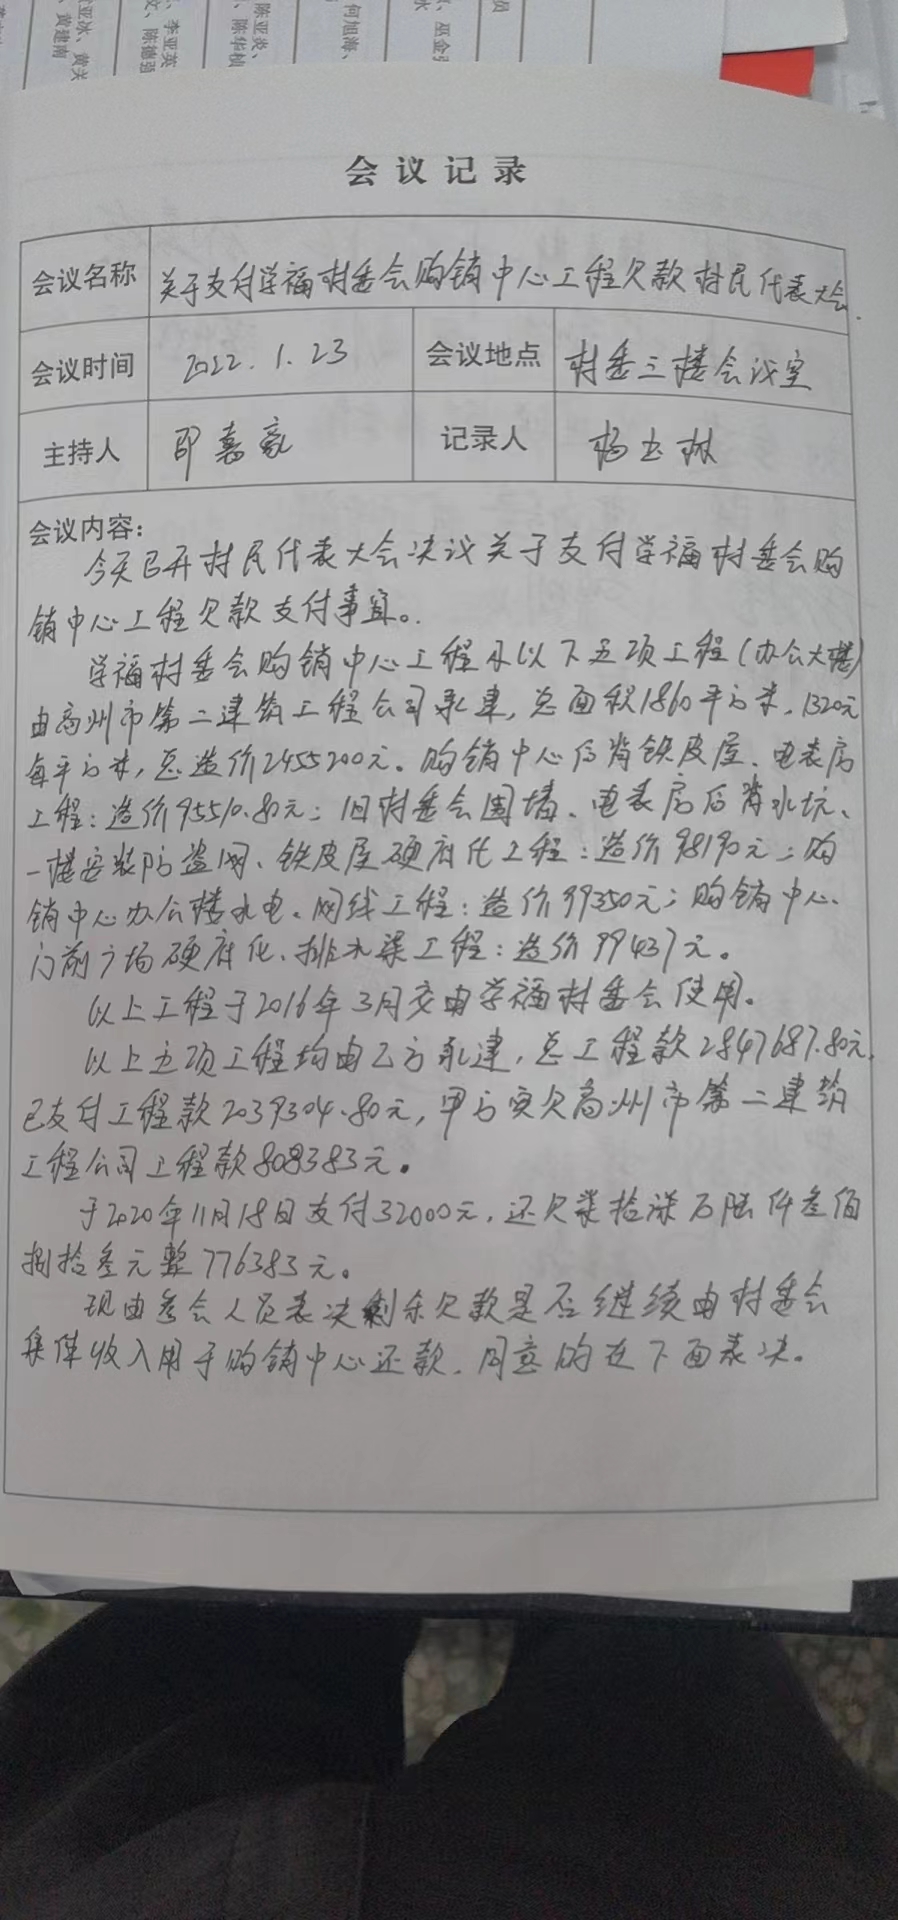 亚冰、黄关
黄建南
、李亚英
文、陈德强
陈亚炎、
、陈华桢
何旭海、
、巫金
水
员
会议记录
会议名称 关于支付学福村委会购销中心工程欠款村民代表大会.
会议时间 2022.1.23 会议地点 村委三楼会议室
主持人 邵嘉豪 记录人 杨玉林
会议内容:
今天召开村民代表大会决议关于支付学福村委会购
销中心工程欠款支付事宜。
学福村委会购销中心工程及以下五项工程(办公大楼)
由高州市第二建筑工程公司承建,总面积1860平方米,1320元
每平方米,总造价2455200元。购销中心后背铁皮屋、电表房
工程:造价95510.80元;旧村委会围墙、电表房后背水坑、
一楼安装防盗网、铁皮屋硬底化工程:造价98190元;购
销中心办公楼水电、网线工程:造价99350元;购销中心
门前广场硬底化、排水渠工程:造价99437元。
以上工程于2016年3月交由学福村委会使用。
以上五项工程均由乙方承建,总工程款2847687.80元,
已支付工程款2039304.80元,甲方实欠高州市第二建筑
工程公司工程款808383元。
于2020年11月18日支付32000元,还欠柒拾柒万陆仟叁佰
捌拾叁元整776383元。
现由参会人员表决剩余欠款是否继续由村委会
集体收入用于购销中心还款,同意的在下面表决。